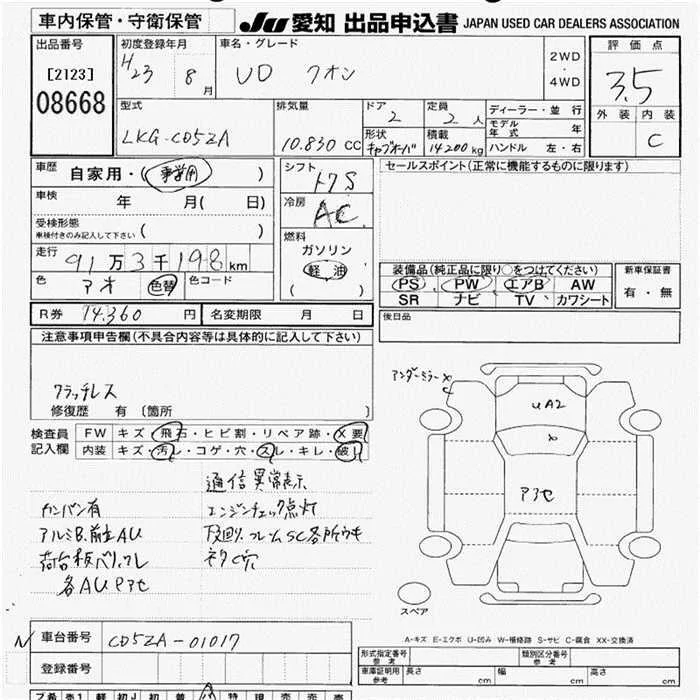 車内保管・守衛保管
JU 愛知 出品申込書 JAPAN USED CAR DEALERS ASSOCIATION
出品番号
[2123]
08668
初度登録年月
H23 8月
車名・グレード
UD クオン
2WD
・
4WD
評価点
3.5
外装 内装
C
型式
LKG-CD5ZA
排気量
10.830 CC
ドア
2
定員
2 人
形状
キャブオーバ
積載
14200kg
ディーラー・並行
モデル年式 年
ハンドル 左・右
車歴
自家用・(事業用)
車検 年 月( 日)
受検形態
車検付きのみ記入して下さい ( )
走行
91万3千198km
色
アオ 色替 色コード
シフト
冷房
AC
燃料
ガソリン
軽油
( )
セールスポイント(正常に機能するものに限ります)
装備品(純正品に限り○をつけてください)
PS PW エアB AW
SR ナビ TV カワシート
新車保証書
有・無
R券 14,360 円 名変期限 月 日
後日品
注意事項申告欄(不具合内容等は具体的に記入して下さい)
クラッチレス
修復歴 有〔箇所 〕
検査員
記入欄
FW キズ・飛石・ヒビ割・リペア跡・X要
内装 キズ・汚レ・コゲ・穴・スレ・キレ・破レ
通信異常表示
カンバン有 エンジンチェック点灯
アルミB.前立AU 下回り.フレームSC各所ウキ
荷台板バリ.ワレ ネクC穴
各AUアセ
アンダーミラーX
C
UA2
X
アセ
スペア
A-キズ E-エクボ U-凹み W-補修跡 S-サビ C-腐食 XX-交換済
N 車台番号 CD5ZA-01017
登録番号
形式指定番号 参考
類別区分番号 参考
車庫証明用 参考 長さ cm 幅 cm 高さ cm